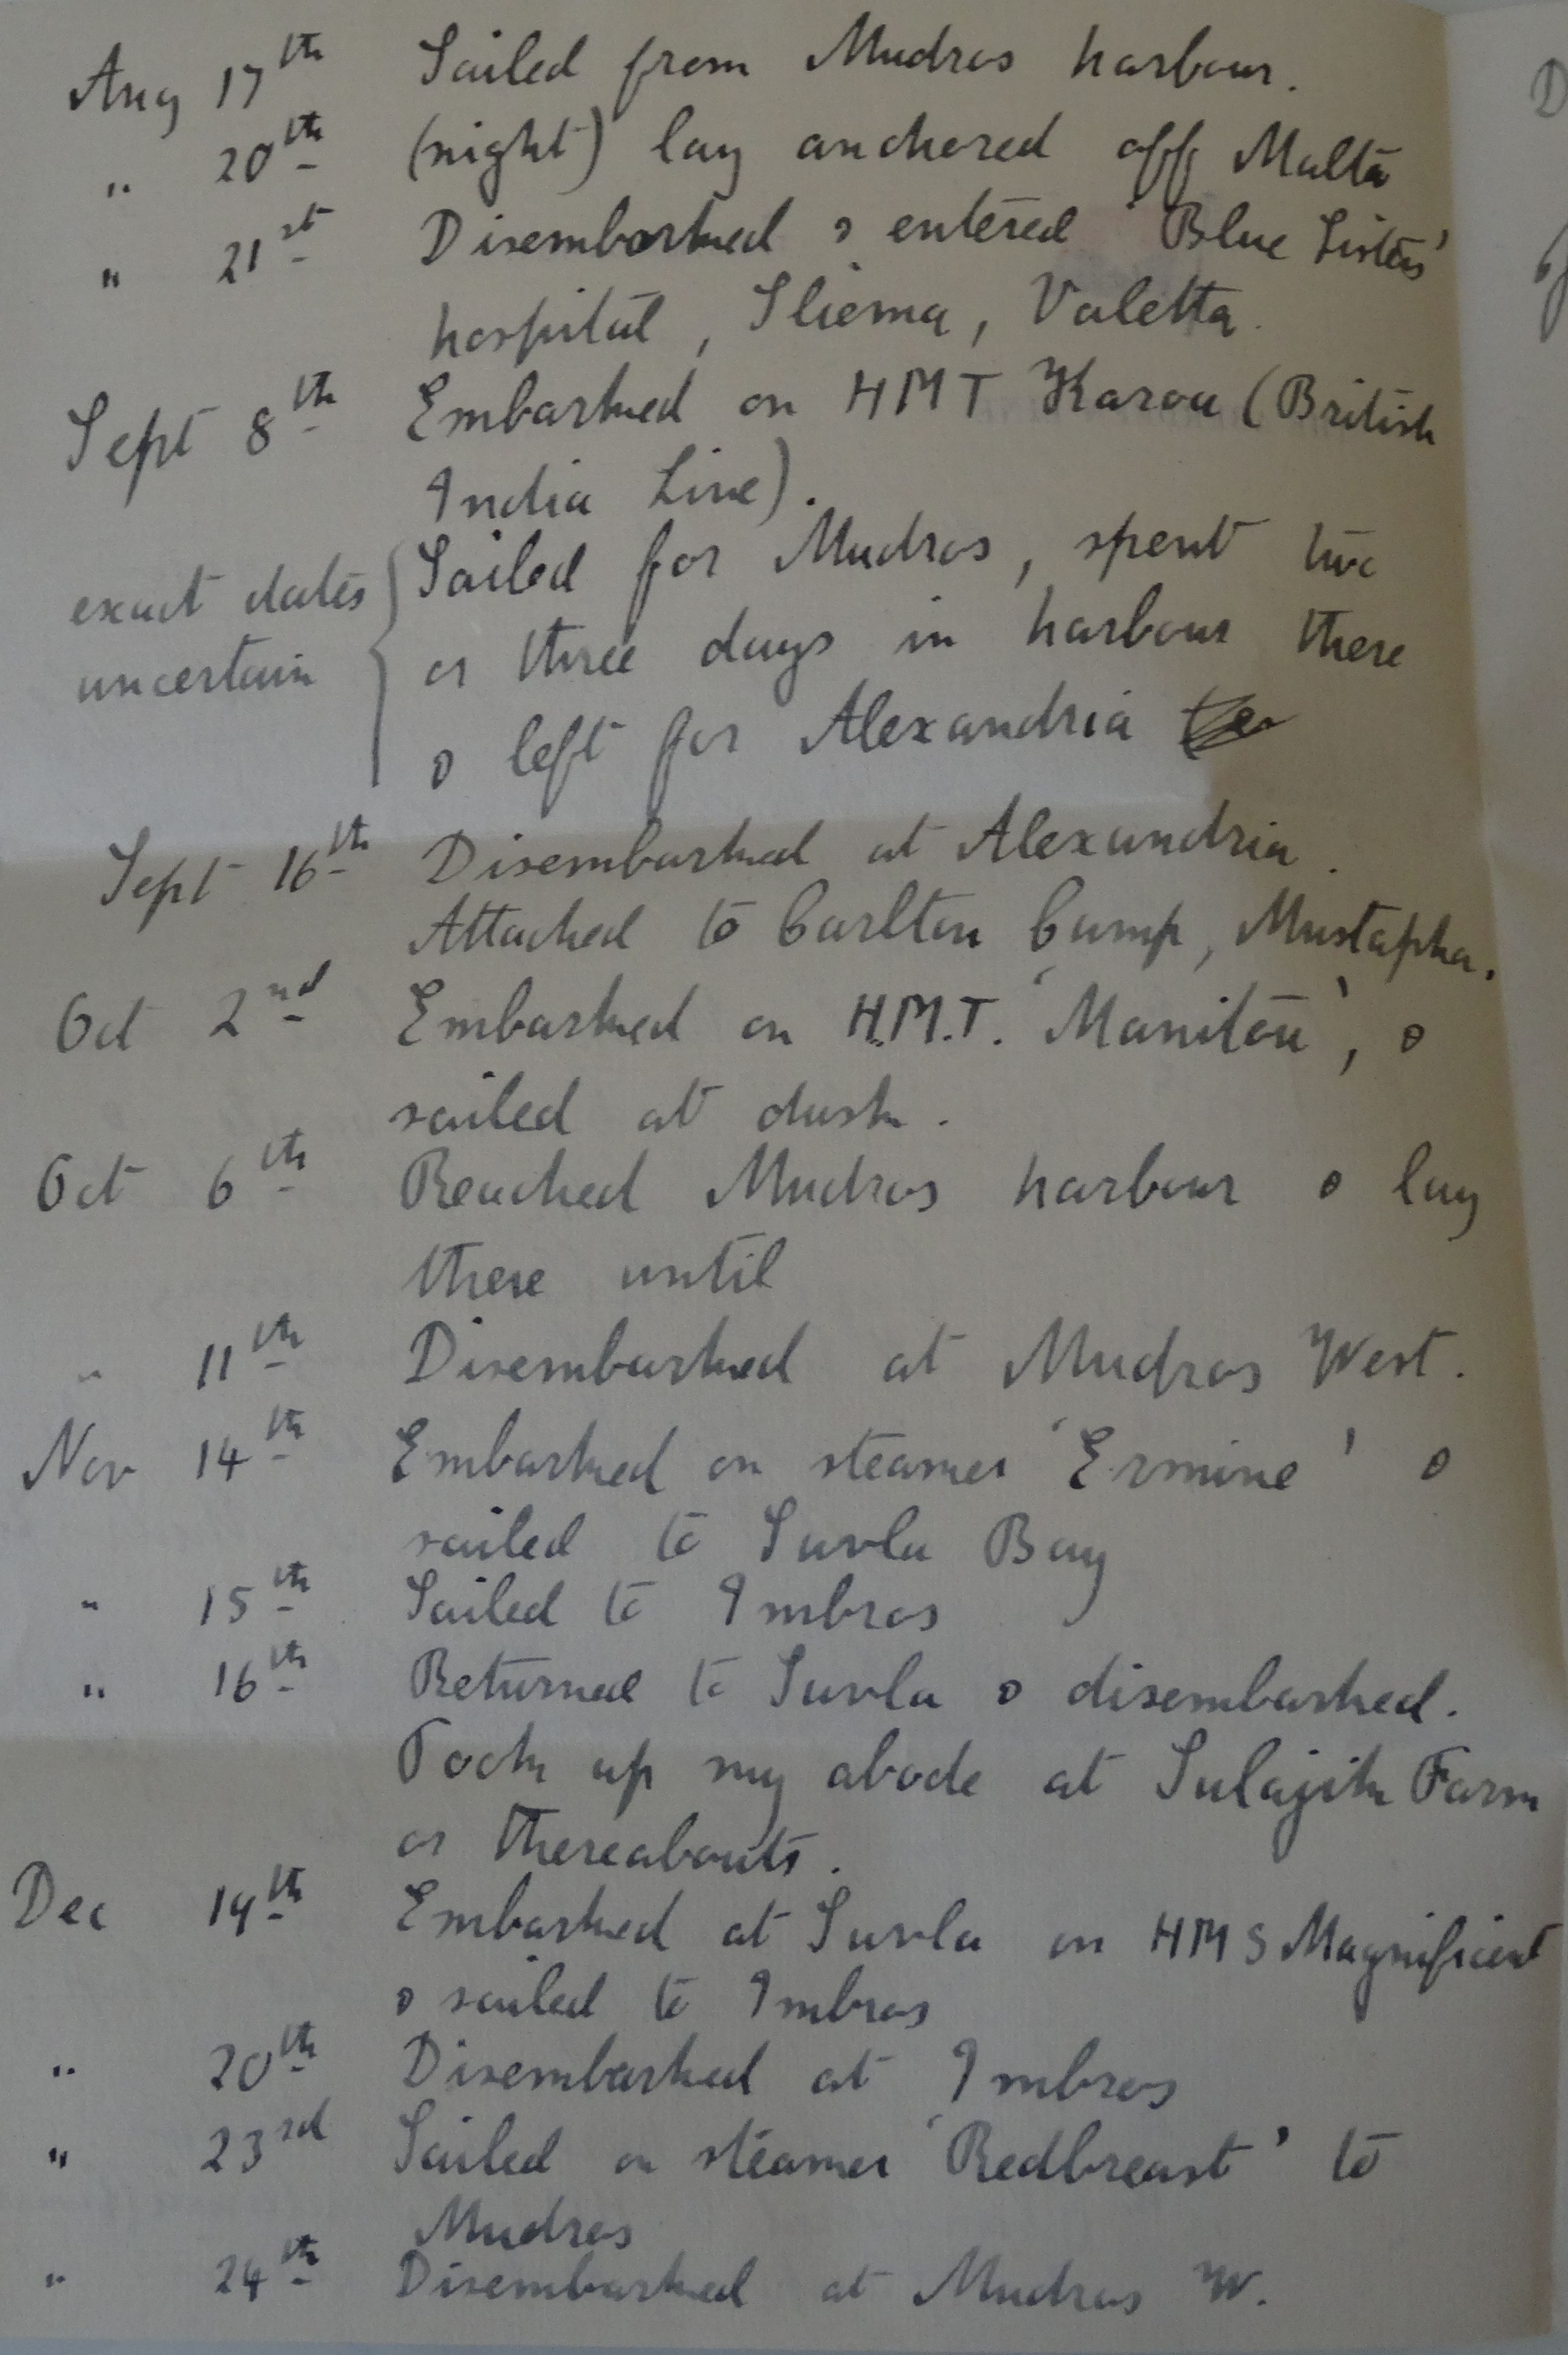 Aug 17th Sailed from Mudros harbour.
" 20th (night) lay anchored off Malta
" 21st Disembarked & entered 'Blue Sisters'
hospital, Sliema, Valetta.
Sept 8th Embarked on HMT Karoa (British
India Line).
exact dates uncertain { Sailed for Mudros, spent two
or three days in harbour there
& left for Alexandria
Sept 16th Disembarked at Alexandria.
Attached to Carlton Camp, Mustapha.
Oct 2nd Embarked on H.M.T. 'Manitou', &
sailed at dusk.
Oct 6th Reached Mudros harbour & lay
there until
" 11th Disembarked at Mudros West.
Nov 14th Embarked on steamer 'Ermine' &
sailed to Suvla Bay
" 15th Sailed to Imbros
" 16th Returned to Suvla & disembarked.
Took up my abode at Sulajik Farm
or thereabouts.
Dec 19th Embarked at Suvla on HMS Magnificent
& sailed to Imbros
" 20th Disembarked at Imbros
" 23rd Sailed on steamer 'Redbreast' to
Mudros
" 24th Disembarked at Mudros W.